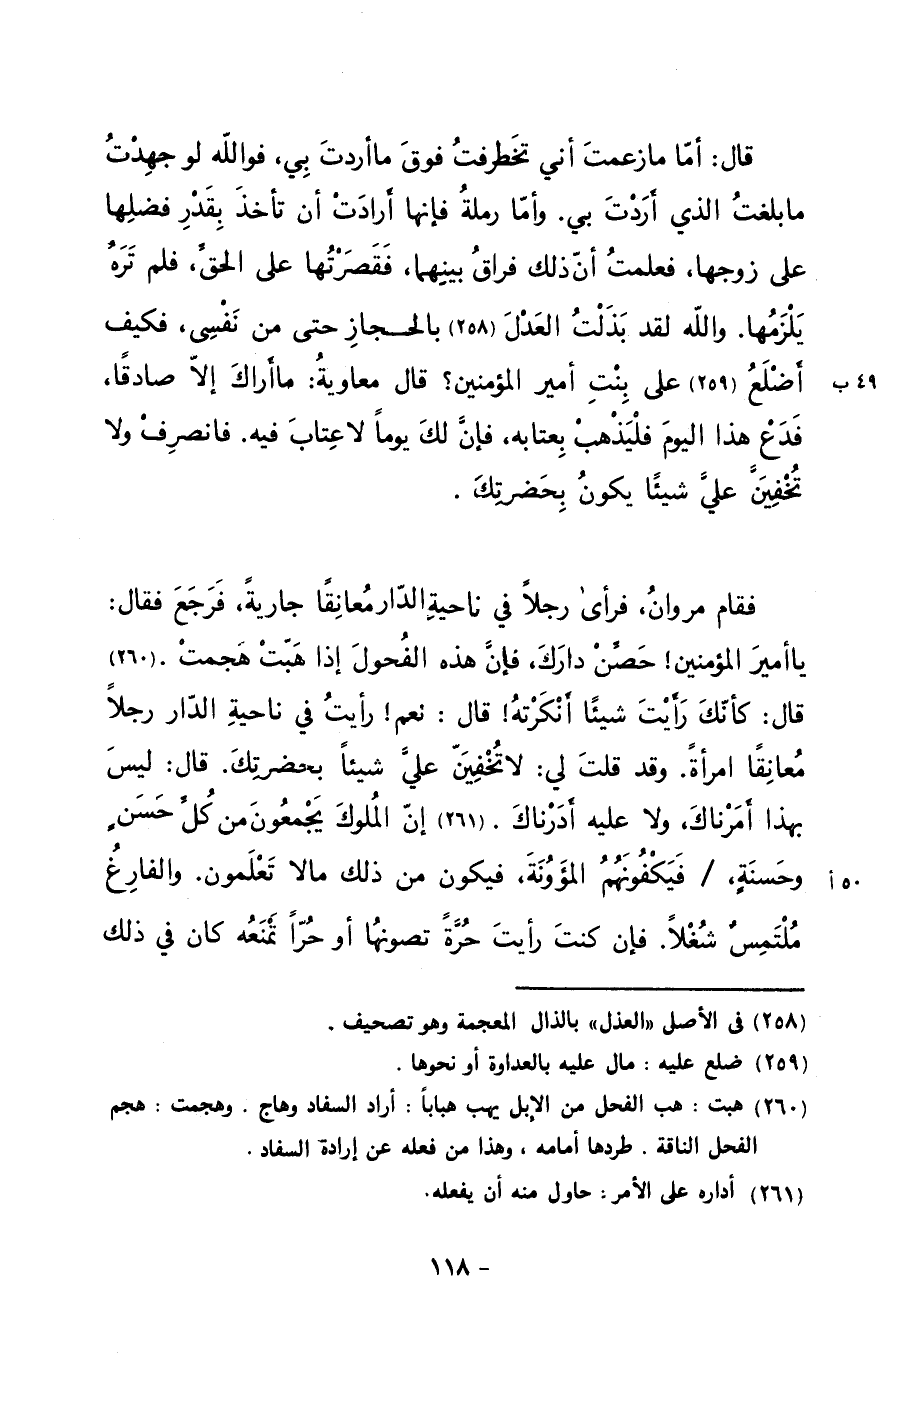 قال: أمّا مازعمتَ أني تخَطرفتُ فوقَ ماأردتَ بِي، فواللّه لو جهِدْتُ
مابلغتُ الذي أَرَدْتَ بي. وأمّا رملةُ فإنها أَرادَتْ أن تأخذَ بِقَدْرِ فضلِها
على زوجها، فعلمتُ أنّ ذلك فراقُ بينِهما، فَقَصَرْتُها على الحقِّ، فلم تَرَهُ
يَلْزَمُها. واللّه لقد بَذَلْتُ العَدْلَ (٢٥٨) بالحجازِ حتى من نَفْسِى، فكيف
أَضْلَعُ (٢٥٩) على بِنْتِ أمير المؤمنين؟ قال معاويةُ: ماأَراكَ إلاّ صادقًا، ٤٩ ب
فَدَعْ هذا اليومَ فلْيَذْهبْ بِعتابه، فإنَّ لكَ يوماً لاعِتابَ فيه. فانصرِفْ ولا
تُخْفِيَنَّ عليَّ شيئًا يكونُ بِحَضرتِكَ .
فقام مروانُ، فرأى رجلاً في ناحيةِ الدّار مُعانِقًا جاريةً، فَرَجَعَ فقال:
ياأميرَ المؤمنين! حَصِّنْ دارَكَ، فإنَّ هذه الفُحولَ إذا هَبّتْ هَجمتْ .(٢٦٠)
قال: كأنّكَ رَأَيْتَ شيئًا أَنْكَرْتَهُ! قال : نعم! رأيتُ في ناحيةِ الدّار رجلاً
مُعانِقًا امرأةً. وقد قلتَ لي: لاتُخْفِيَنّ عليَّ شيئاً بحضرتِكَ. قال: ليسَ
بهذا أَمَرْناكَ، ولا عليه أَدَرْناكَ . (٢٦١) إنّ المُلوكَ يَجْمعُونَ من كُلِّ حَسَنٍ
وحَسنَةٍ، / فَيَكْفُونَهُمُ المَؤُونَةَ، فيكون من ذلك مالا تَعْلَمون. والفارِغُ ٥٠ أ
مُلْتَمِسٌ شُغْلاً. فإن كنتَ رأيتَ حُرَّةً تصونُها أو حُرّاً تمْنَعُه كان في ذلك
(٢٥٨) فى الأصل «العذل» بالذال المعجمة وهو تصحيف .
(٢٥٩) ضلع عليه : مال عليه بالعداوة أو نحوها .
(٢٦٠) هبت : هب الفحل من الإبل يهب هباباً : أراد السفاد وهاج . وهجمت : هجم
الفحل الناقة . طردها أمامه ، وهذا من فعله عن إرادة السفاد .
(٢٦١) أداره على الأمر : حاول منه أن يفعله.
- ١١٨